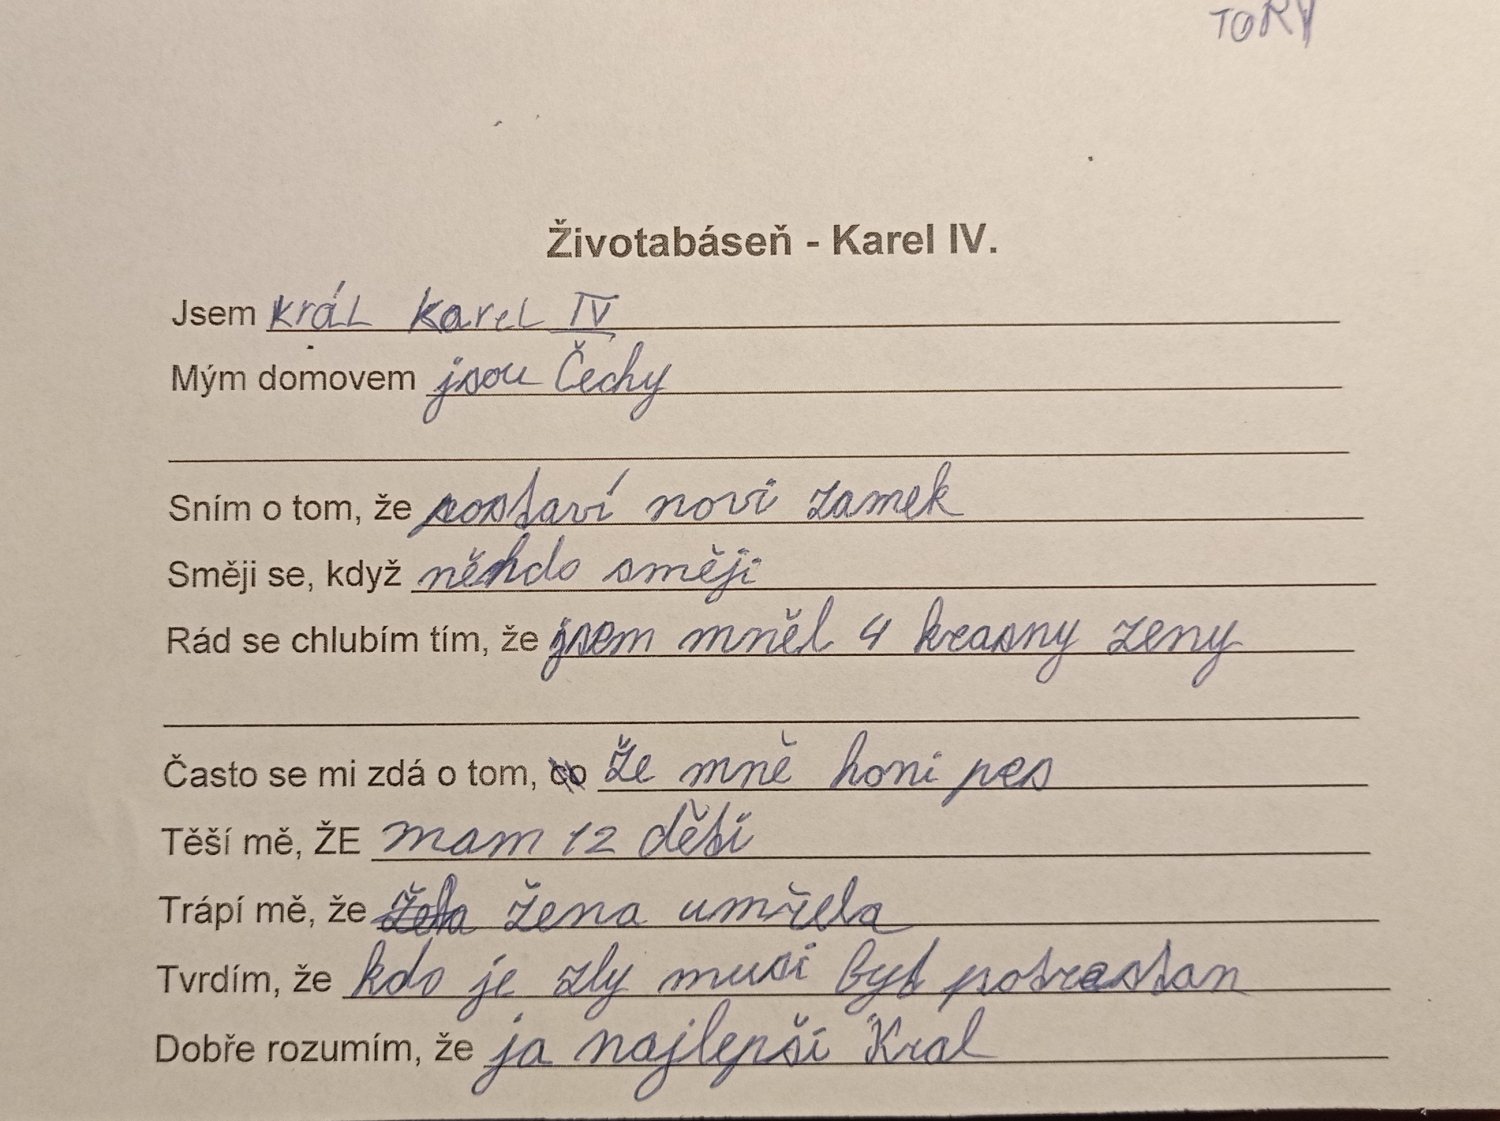 TORY
Životabáseň - Karel IV.
Jsem král Karel IV
Mým domovem jsou Čechy
Sním o tom, že postaví novi zamek
Směji se, když někdo směji
Rád se chlubím tím, že jsem mněl 4 krasny zeny
Často se mi zdá o tom, co že mně honi pes
Těší mě, ŽE mam 12 děti
Trápí mě, že žena umřela
Tvrdím, že kdo je zly musi byt potrestan
Dobře rozumím, že ja najlepší Kral